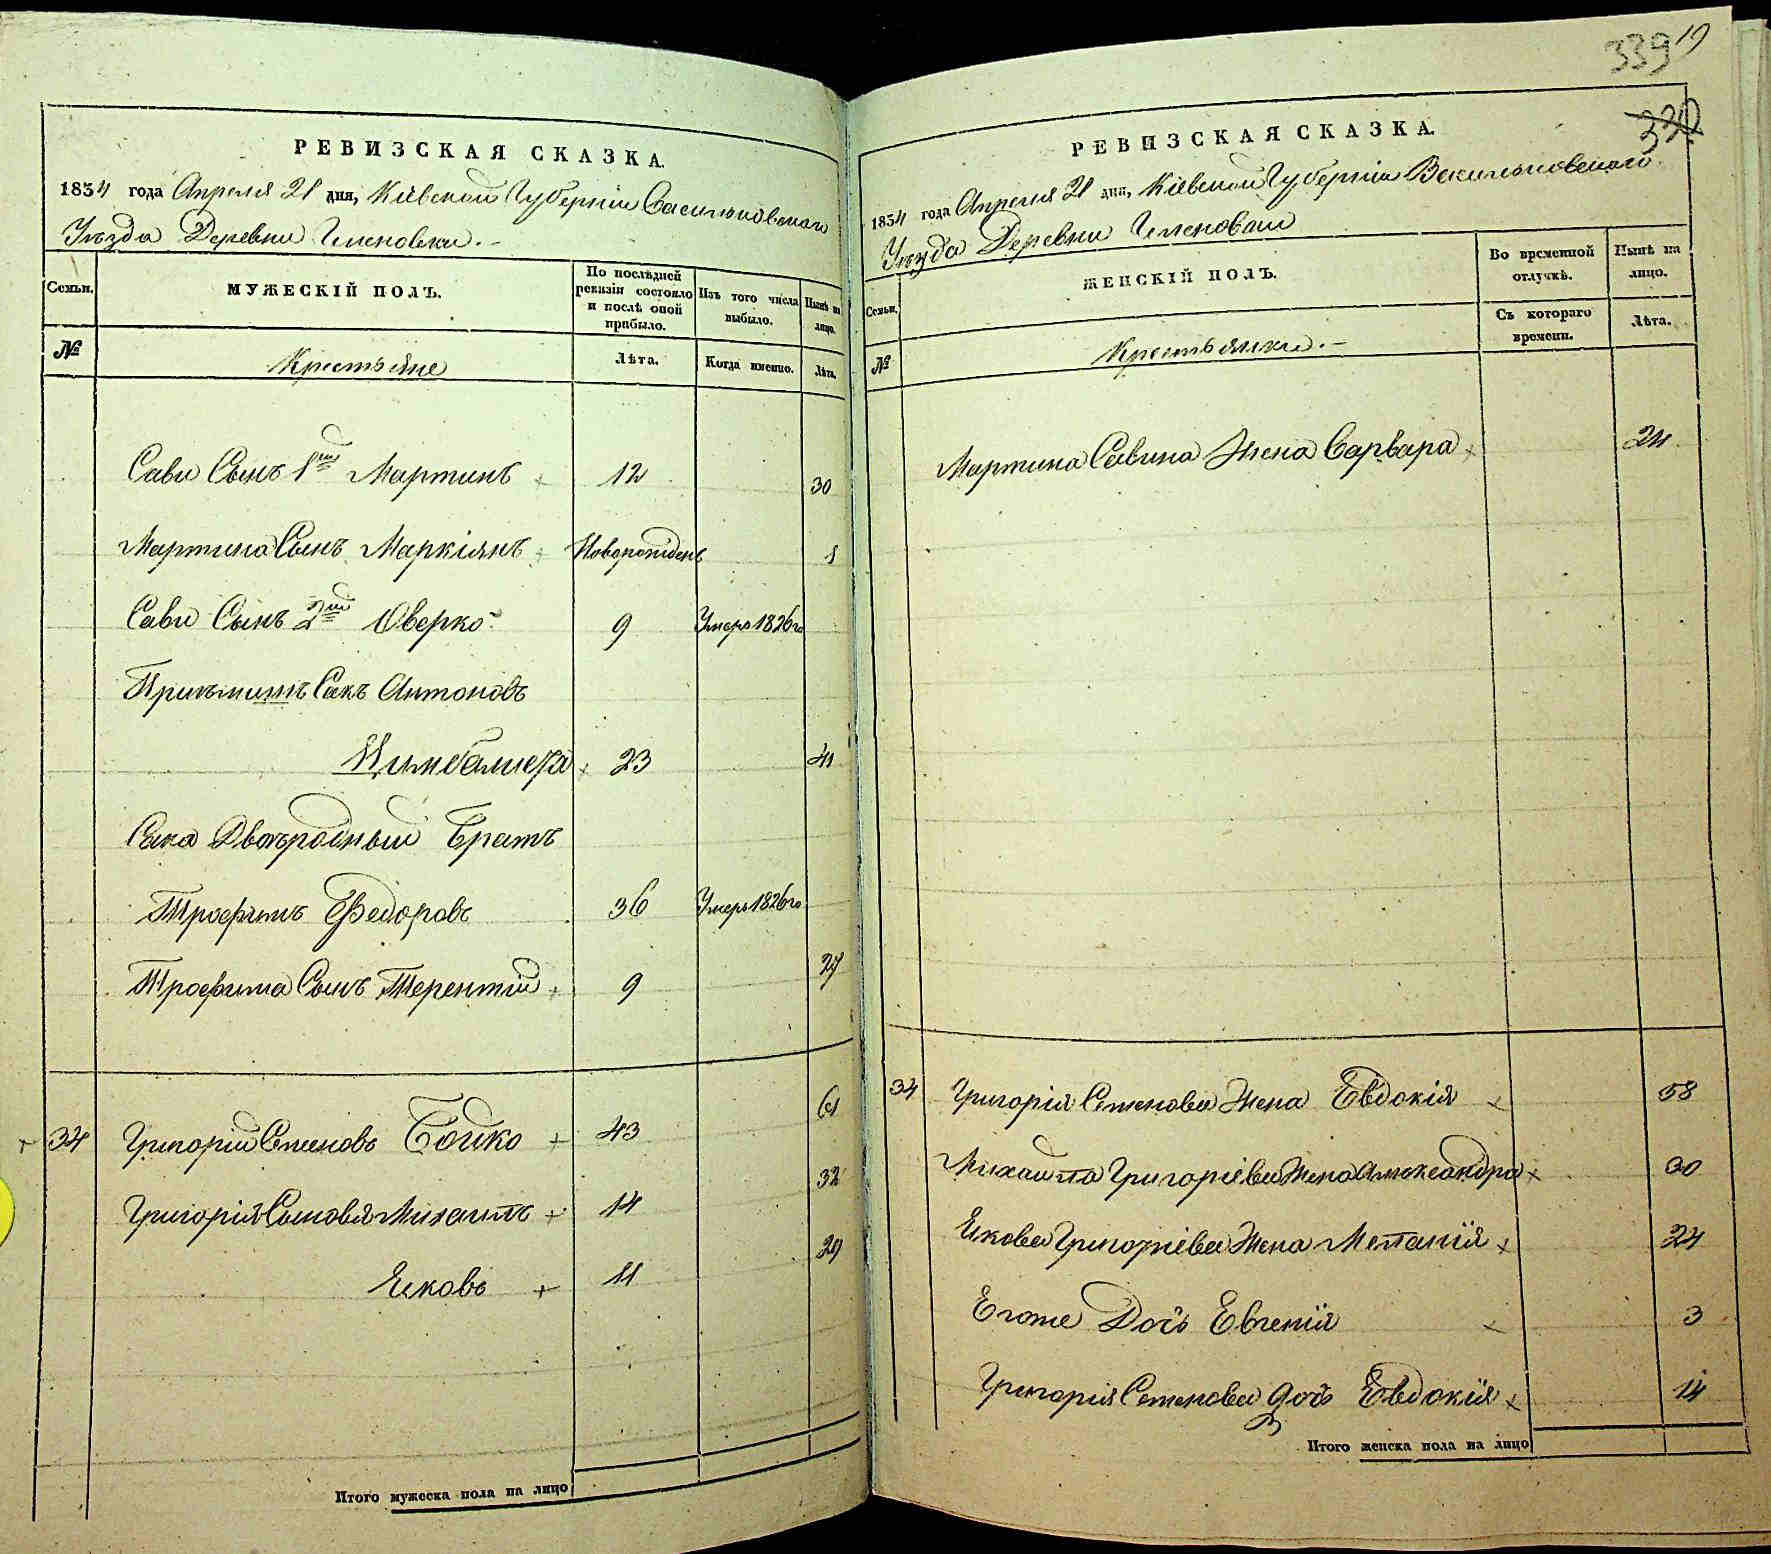 339 19
330
РЕВИЗСКАЯ СКАЗКА.
1834 года Апреля 21 дня, Кіевской Губерніи Васильковскаго
Уѣзда Деревни
Семьи.
МУЖЕСКІЙ ПОЛЪ.
По послѣдней ревизіи состояло и послѣ оной прибыло.
Изъ того числа выбыло.
Нынѣ на лицо.
№
Крестьяне
Лѣта.
Когда именно.
Лѣта.
Сави Сынъ 1й Мартинъ + 12 30
Мартина Сынъ Маркіянъ + Новорожденъ 1
Сави Сынъ 2й Оверко 9 Умеръ 1826го
Приъмышъ Сакъ Антоновъ
Цимбалиста + 23 41
Сака Двоюродный Братъ
Трофимъ Федоровъ 36 Умеръ 1826го
Трофима Сынъ Терентій + 9 27
+ 34 Григорій Семеновъ Бойко + 43 61
Григорія Сыновья Михаилъ + 14 32
Яковъ + 11 29
Итого мужеска пола на лицо
РЕВИЗСКАЯ СКАЗКА.
1834 года Апреля 21 дня, Кіевской Губерніи Васильковскаго
Уѣзда Деревни
Семьи.
ЖЕНСКІЙ ПОЛЪ.
Во временной отлучкѣ.
Нынѣ на лицо.
№
Крестьянки.
Съ котораго времени.
Лѣта.
Мартина Савина Жена Варвара + 24
34 Григорія Семенова Жена Евдокія + 58
Михаила Григоріева Жена Александра + 30
Якова Григоріева Жена Меланія + 24
Егоже Дочь Евгенія + 3
Григорія Семенова дочь Евдокія + 14
Итого женска пола на лицо